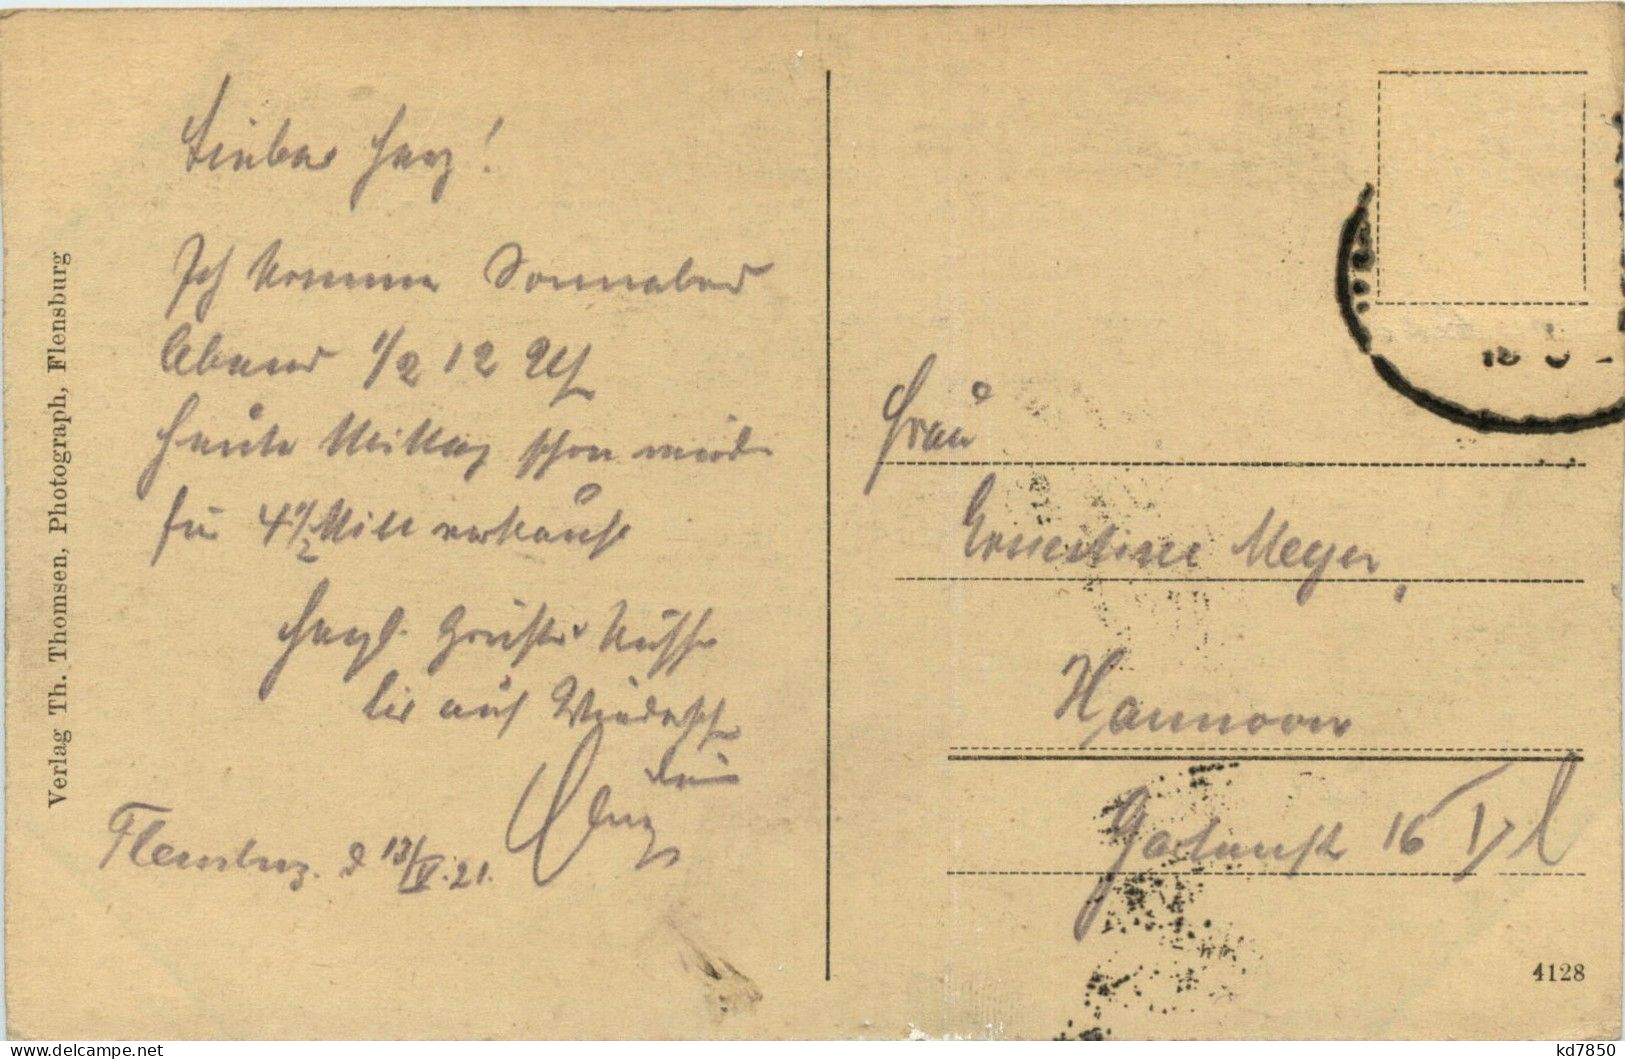 Liebes Herz!
Ich komme Sonnabend
Abend 1/2 12 Uh
heute Mittag schon
für 4 1/2 Mill verkauft
Herzl. Grüße u Küsse
bis auf Wiedersehn
Dein
Flensburg. d 13/V.21.
Verlag Th. Thomsen, Photograph, Flensburg
Frau
Ernestine Meyer,
Hannover
16
4128
kd7850